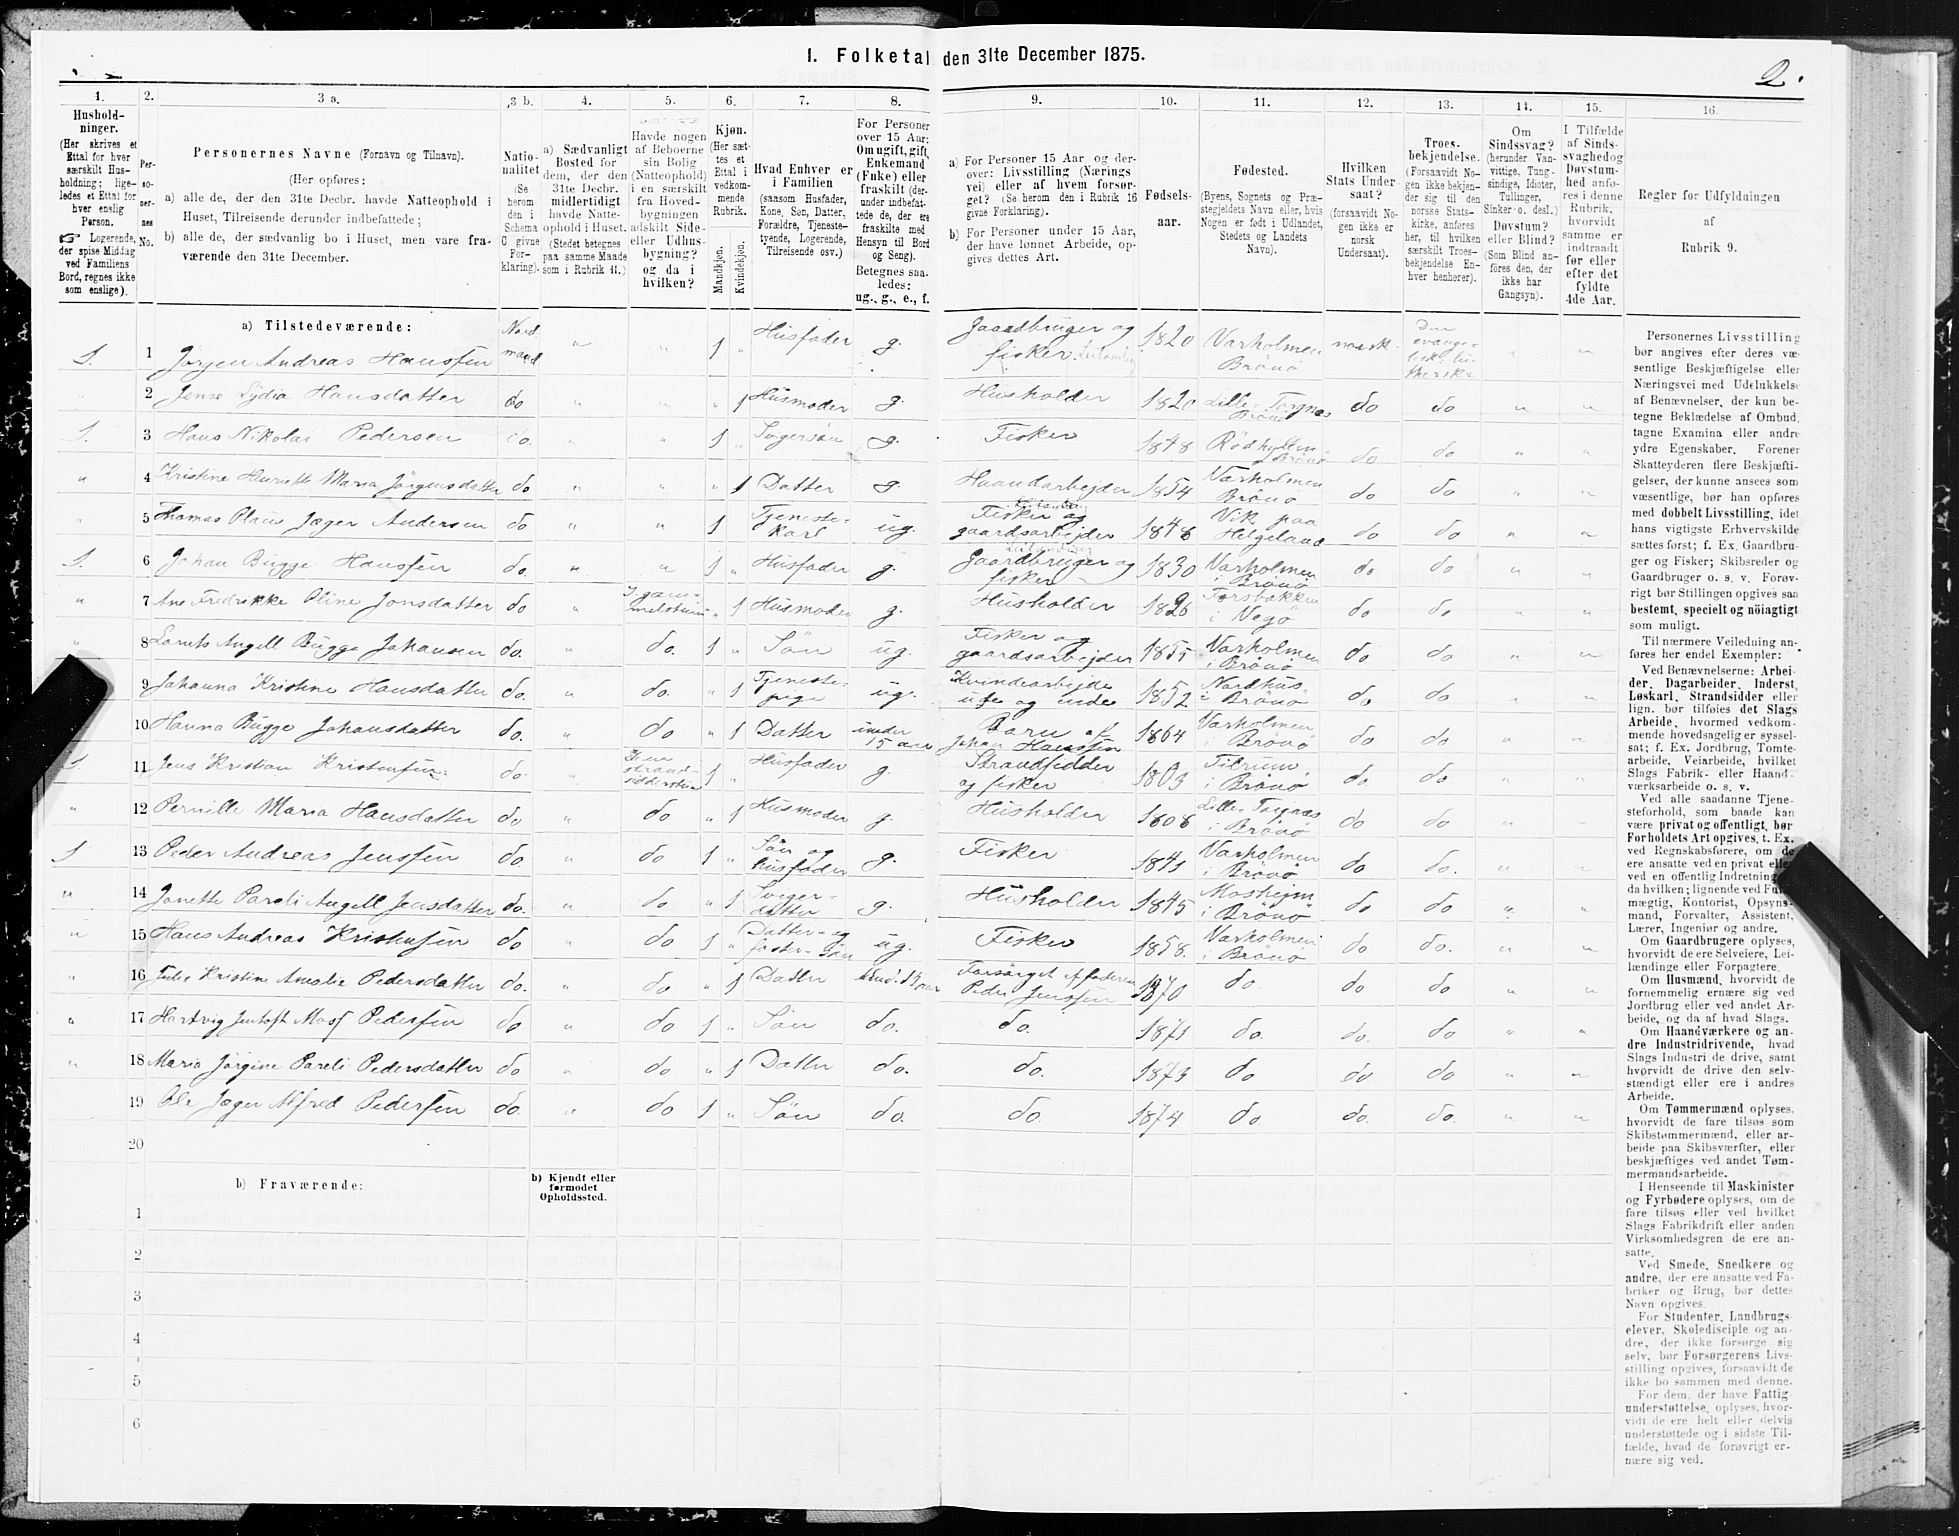 1. Folketal den 31te December 1875.
2.
1.
Hushold-
ninger.
(Her skrives et
Ettal for hver
særskilt Hus-
holdning; lige-
ledes et Ettal for
hver enslig
Person.
☞ Logerende,
der spise Middag
ved Familiens
Bord, regnes ikke
som enslige).
2.
Per-
so-
ner-
nes
No.
3 a.
Personernes Navne (Fornavn og Tilnavn).
(Her opføres:
a) alle de, der den 31te Decbr. havde Natteophold i
Huset, Tilreisende derunder indbefattede;
b) alle de, der sædvanlig bo i Huset, men vare fra-
værende den 31te December.
3 b.
Natio-
nalitet
(Se
herom
den i
Schema
C givne
For-
klaring).
4.
a) Sædvanligt
Bosted for
dem, der den
31te Decbr.
midlertidigt
havde Natte-
ophold i Huset.
(Stedet betegnes
paa samme Maade
som i Rubrik 11.)
5.
Havde nogen
af Beboerne
sin Bolig
(Natteophold)
i en særskilt
fra Hoved-
bygningen
adskilt Side-
eller Udhus-
bygning?
og da i
hvilken?
6.
Kjøn.
(Her sæt-
tes et
Ettal i
vedkom-
mende
Rubrik.
Mandkjøn.
Kvindekjøn.
7.
Hvad Enhver er
i Familien
(saasom Husfader,
Kone, Søn, Datter,
Forældre, Tjeneste-
tyende, Logerende,
Tilreisende osv.)
8.
For Personer
over 15 Aar:
Om ugift, gift,
Enkemand
(Enke) eller
fraskilt (der-
under indbefat-
tede de, der ere
fraskilte med
Hensyn til Bord
og Seng).
Betegnes saa-
ledes:
ug., g., e., f.
9.
a) For Personer 15 Aar og der-
over: Livsstilling (Nærings
vei) eller af hvem forsør-
get? (Se herom den i Rubrik 16
givne Forklaring).
b) For Personer under 15 Aar,
der have lønnet Arbeide, op-
gives dettes Art.
10.
Fødsels-
aar.
11.
Fødested.
(Byens, Sognets og Præ-
stegjeldets Navn eller, hvis
Nogen er født i Udlandet,
Stedets og Landets
Navn).
12.
Hvilken
Stats Under-
saat?
(forsaavidt No-
gen ikke er
norsk
Undersaat).
13.
Troes-
bekjendelse.
(Forsaavidt No-
gen ikke bekjen-
der sig til den
norske Stats-
kirke, anføres
her, til hvilken
særskilt Troes-
bekjendelse En-
hver henhører).
14.
Om
Sindssvag?
(herunder Van-
vittige, Tung-
sindige, Idioter,
Tullinger,
Sinker o. desl.)
Døvstum?
eller Blind?
(Som Blind an-
føres den, der
ikke har
Gangsyn).
15.
I Tilfælde
af Sinds-
svaghedog
Døvstum-
hed anfø-
res i denne
Rubrik,
hvorvidt
samme er
indtraadt
før eller
efter det
fyldte
4de Aar.
16.
Regler for Udfyldningen
af
Rubrik 9.
a) Tilstedeværende:
1. 1 Jørgen Andreas Hanssen Nordmand „ „ 1 „ Husfader g. Gaardbruger og fisker Leilænding 1820 Varholmen Brönö norsk Den evange- „ „
„ 2 Jense Lydia Hansdatter do „ „ „ 1 Husmoder g. Husholder 1820 Lille-Torgnes Brönö do do „ „
1. 3 Hans Nikolai Pedersen do. „ „ 1 „ Svigersön g. Fisker 1848 Rödholmen i Brönö do do „ „
„ 4 Kristine Henriette Maria Jörgensdatter do „ „ „ 1 Datter g. Haandarbejder 1854 Varholmen Brönö do do „ „
„ 5 Thomas Olaus Jæger Andersen do „ „ 1 „ Tjeneste-karl ug. Fisker og gaardsarbejder 1848 Vik paa Helgeland do do „ „
1. 6 Johan Bugge Hanssen do. „ „ 1 „ Husfader g. Leilænding Gaardbruger og fisker 1830 Varholmen i Brönö do do „ „
„ 7 Ane Fredrikke Oline Jonsdatter do „ „ 1 Husmoder g. Husholder 1826 Forsbakken i Vegö do do „ „
„ 8 Angell Bugge Johansen do. „ do. 1 „ Sön ug. Fisker og gaardsarbejder 1855 Varholmen i Brönö do do „ „
9 Johanna Kristine Hansdatter do. „ do. „ 1 Tjeneste-pige ug. Kvindearbejde ude og inde 1852 Nordhus i Brönö do do „ „
10 Hanna Bugge Johansdatter do. „ do „ 1 Datter under 15 aar Barn af Johan Hanssen 1864 Varholmen i Brönö do do „ „
1. 11 Jens Kristian Kristensen do. „ 1 „ Husfader g. Strandsidder og fisker 1803 Tilrum i Brönö do do „ „
„ 12 Pernille Maria Hansdatter do „ do „ 1 Husmoder g. Husholder 1808 Lille-Torgnes i Brönö do do „ „
1 13 Peder Andreas Jenssen do. „ do 1 „ Sön og husfader g. Fisker 1841 Varholmen i Brönö do do. „ „
„ 14 Janette Pareli Angell Jensdatter do. „ do „ 1 Sviger-datter g. Husholder 1845 Mosheim i Brönö do do „ „
„ 15 Hans Andreas Kristensen do „ do 1 „ Datter- og foster-Sön ug. Fisker 1858. Varholmen i Brönö do do. „ „
„ 16 Kristine Amalie Pedersdatter do. „ do „ 1 Datter und. 15 aar Forsörget af faderen Peder Jenssen 1870 do. do do „ „
„ 17 Hartvig Jentoft Moss Pedersen do „ do 1 „ Sön do. do. 1871 do. do. do „ „
„ 18 Maria Jörgine Pareli Pedersdatter do „ do „ 1 Datter do. do. 1873 do do do „ „
19 Ole Jæger Alfred Pedersen do. „ do 1 „ Sön do. do. 1874 do do. do. „ „
20
b) Fraværende:
b) Kjendt eller
formodet
Opholdssted.
1
2
3
4
5
6
Personernes Livsstilling
bør angives efter deres væ-
sentlige Beskjæftigelse eller
Næringsvei med Udelukkelse
af Benævnelser, der kun be-
tegne Beklædelse af Ombud,
tagne Examina eller andre
ydre Egenskaber. Forener
Skatteyderen flere Beskjæfti-
gelser, der kunne ansees som
væsentlige, bør han opføres
med dobbelt Livsstilling, idet
hans vigtigste Erhvervskilde
sættes først; f. Ex. Gaardbru-
ger og Fisker; Skibsreder og
Gaardbruger o. s. v. Forøv-
rigt bør Stillingen opgives saa
bestemt, specielt og nöiagtigt
som muligt.
Til nærmere Veiledning an-
føres her endel Exempler:
Ved Benævnelserne: Arbei-
der, Dagarbeider, Inderst,
Løskarl, Strandsidder eller
lign. bør tilføies det Slags
Arbeide, hvormed vedkom-
mende hovedsagelig er syssel-
sat; f. Ex. Jordbrug, Tomte-
arbeide, Veiarbeide, hvilket
Slags Fabrik- eller Haand-
værksarbeide o. s. v.
Ved alle saadanne Tjene-
steforhold, som baade kan
være privat og offentligt, bør
Forholdets Art opgives, t. Ex.
ved Regnskabsførere, om de
ere ansatte ved en privat eller
ved en offentlig Indretning
da hvilken; lignende ved Fuld-
mægtig, Kontorist, Opsyns-
mand, Forvalter, Assistent,
Lærer, Ingeniør og andre.
Om Gaardbrugere oplyses,
hvorvidt de ere Selveiere, Lei-
lændinge eller Forpagtere.
Om Husmænd, hvorvidt de
fornemmelig ernære sig ved
Jordbrug eller ved andet Ar-
beide, og da af hvad Slags.
Om Haandværkere og an-
dre Industridrivende, hvad
Slags Industri de drive, samt
hvorvidt de drive den selv-
stændigt eller ere i andres
Arbeide.
Om Tømmermænd oplyses,
hvorvidt de fare tilsøs som
Skibstømmermænd, eller ar-
beide paa Skibsværfter, eller
beskjæftiges ved andet Tøm-
mermandsarbeide.
I Henseende til Maskinister
og Fyrbødere oplyses, om de
fare tilsøs eller ved hvilket
Slags Fabrikdrift eller anden
Virksomhedsgren de ere an-
satte.
Ved Smede, Snedkere og
andre, der ere ansatte ved Fa-
briker og Brug, bør dettes
Navn opgives.
For Studenter, Landbrugs-
elever, Skoledisciple og an-
dre, der ikke forsørge sig
selv, bør Forsørgerens Livs-
stilling opgives, forsaavidt de
ikke bo sammen med denne.
For dem, der have Fattig-
understøttelse, oplyses, hvor-
vidt de ere helt eller delvis
understøttede og i sidste Til-
fælde, hvad de forøvrigt er-
nære sig ved.